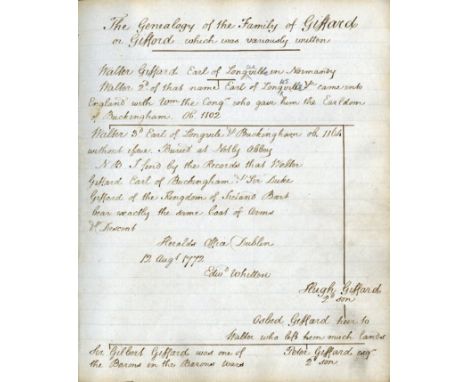 The Genealogy of the Family of Giffard
or Gifford which was variously written
Walter Giffard Earl of Longville in Normandy
Walter 2d of that name Earl of Longville &c came into
England with Wm the Conqr who gave him the Earldom
of Buckingham Ob. 1102
Walter 3d Earl of Longvile & Buckingham ob. 1164
without issue. Buried at Notly Abbey
N.B. I find by the Records that Walter
Giffard Earl of Buckingham & Sir Duke
Giffard of the Kingdom of Ireland Bart
bear exactly the same Coat of Arms
& Descent
Heralds Office Dublin
12 Augt 1772
Edwd Whitton
Hugh Giffard
2d son
Osbed Giffard heir to
Walter who left him much lands
Sir Gilbert Giffard was one of
the Barons in the Barons Wars
Peter Giffard esqr
2d son